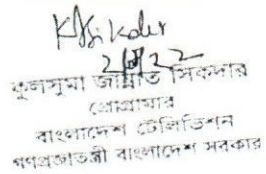 KJSikder
কুলসুমা জান্নাত সিকদার
প্রোগ্রামার
বাংলাদেশ টেলিভিশন
গণপ্রজাতন্ত্রী বাংলাদেশ সরকার